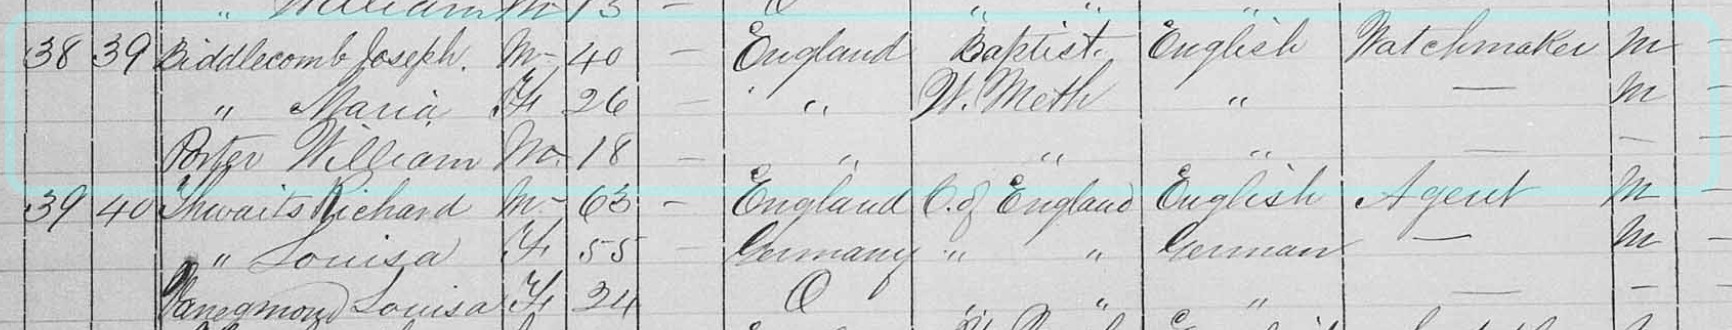 " William M 13 — O " " "
38 39 Biddlecomb Joseph. M- 40 — England Baptist. English Watchmaker M -
" Maria F. 26 — " " W. Meth " — M -
Porter William M. 18 — " " " — — -
39 40 Thwaits Richard M- 63 - England C. of England English Agent M -
" Louisa F. 55 — Germany " " German — M -
Vanegmond Louisa F. 24 O " " " — — -